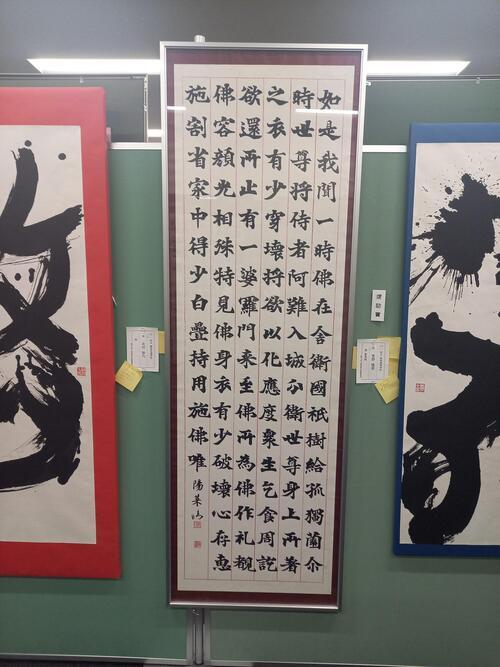 如是我聞一時佛在舍衛國祇樹給孤獨薗尒
時世尊將侍者阿難入城分衛世尊身上所著
之衣有少穿壞將欲以化應度衆生乞食周訖
欲還所止有一婆羅門来至佛所為佛作礼覩
佛容顏光相殊特見佛身衣有少破壞心存惠
施割省家中得少白疊持用施佛唯
奨励賞